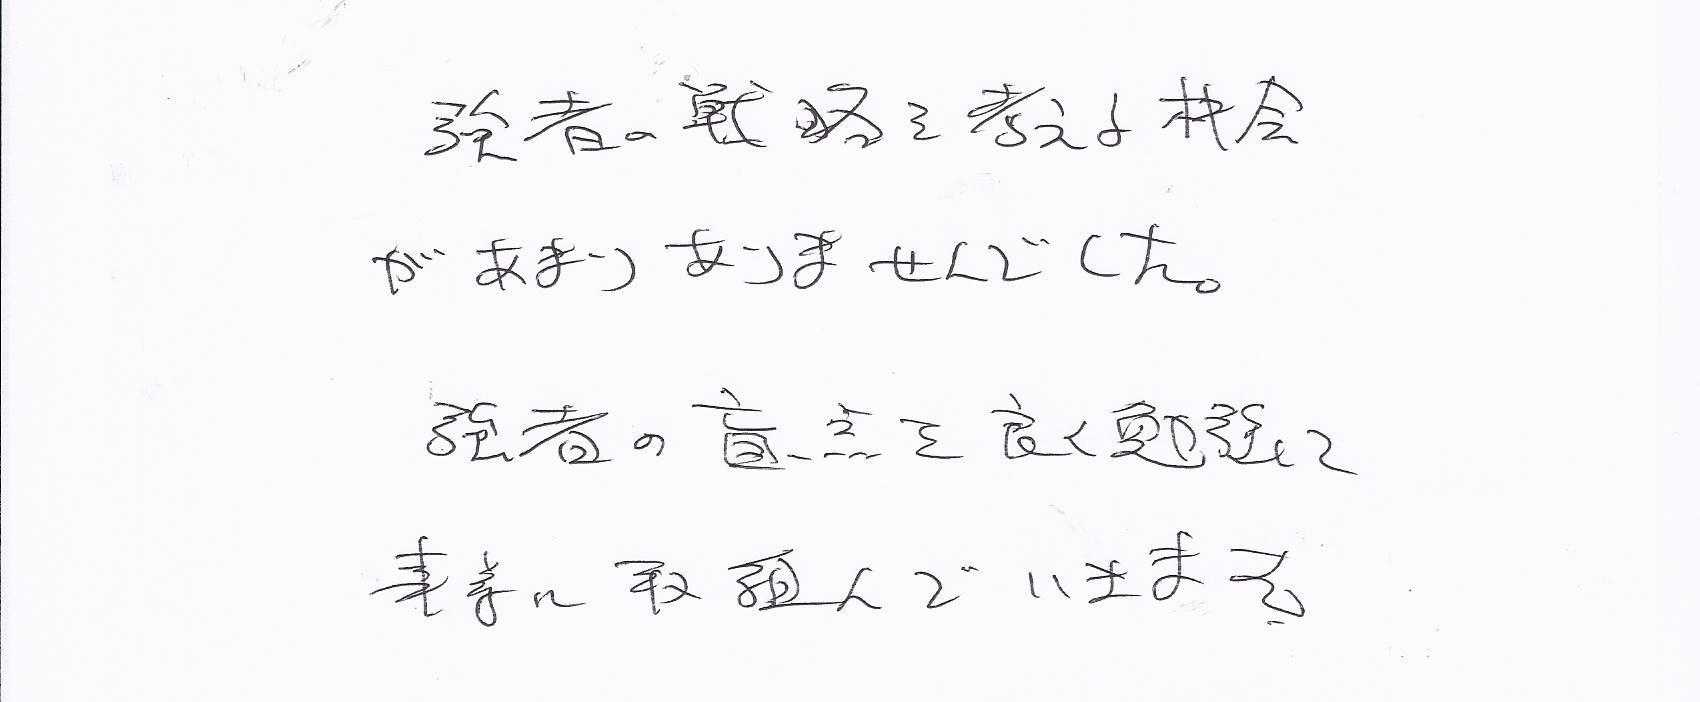 強者の戦略を考える機会
があまりありませんでした。
強者の盲点を良く勉強して
事業に取組んでいきます。